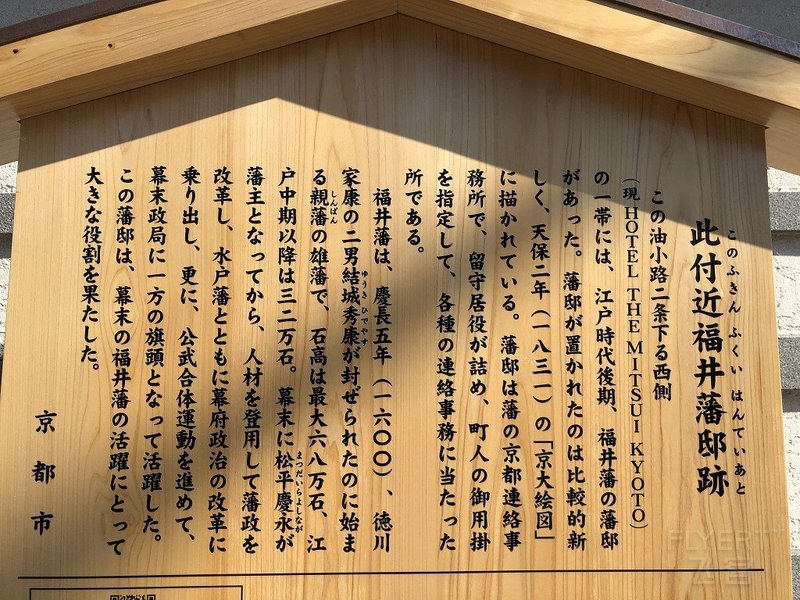 此付近福井藩邸跡
このふきん ふくい はんていあと
この油小路二条下る西側
（現HOTEL THE MITSUI KYOTO）
の一帯には、江戸時代後期、福井藩の藩邸
があった。藩邸が置かれたのは比較的新
しく、天保二年（一八三一）の「京大絵図」
に描かれている。藩邸は藩の京都連絡事
務所で、留守居役が詰め、町人の御用掛
を指定して、各種の連絡事務に当たった
所である。
福井藩は、慶長五年（一六〇〇）、徳川
家康の二男結城秀康が封ぜられたのに始ま
ゆうきひでやす
る親藩の雄藩で、石高は最大六八万石、江
しんぱん
戸中期以降は三二万石。幕末に松平慶永が
まつだいらよしなが
藩主となってから、人材を登用して藩政を
改革し、水戸藩とともに幕府政治の改革に
乗り出し、更に、公武合体運動を進めて、
幕末政局に一方の旗頭となって活躍した。
この藩邸は、幕末の福井藩の活躍にとって
大きな役割を果たした。
京都市
FLYERT
飞客